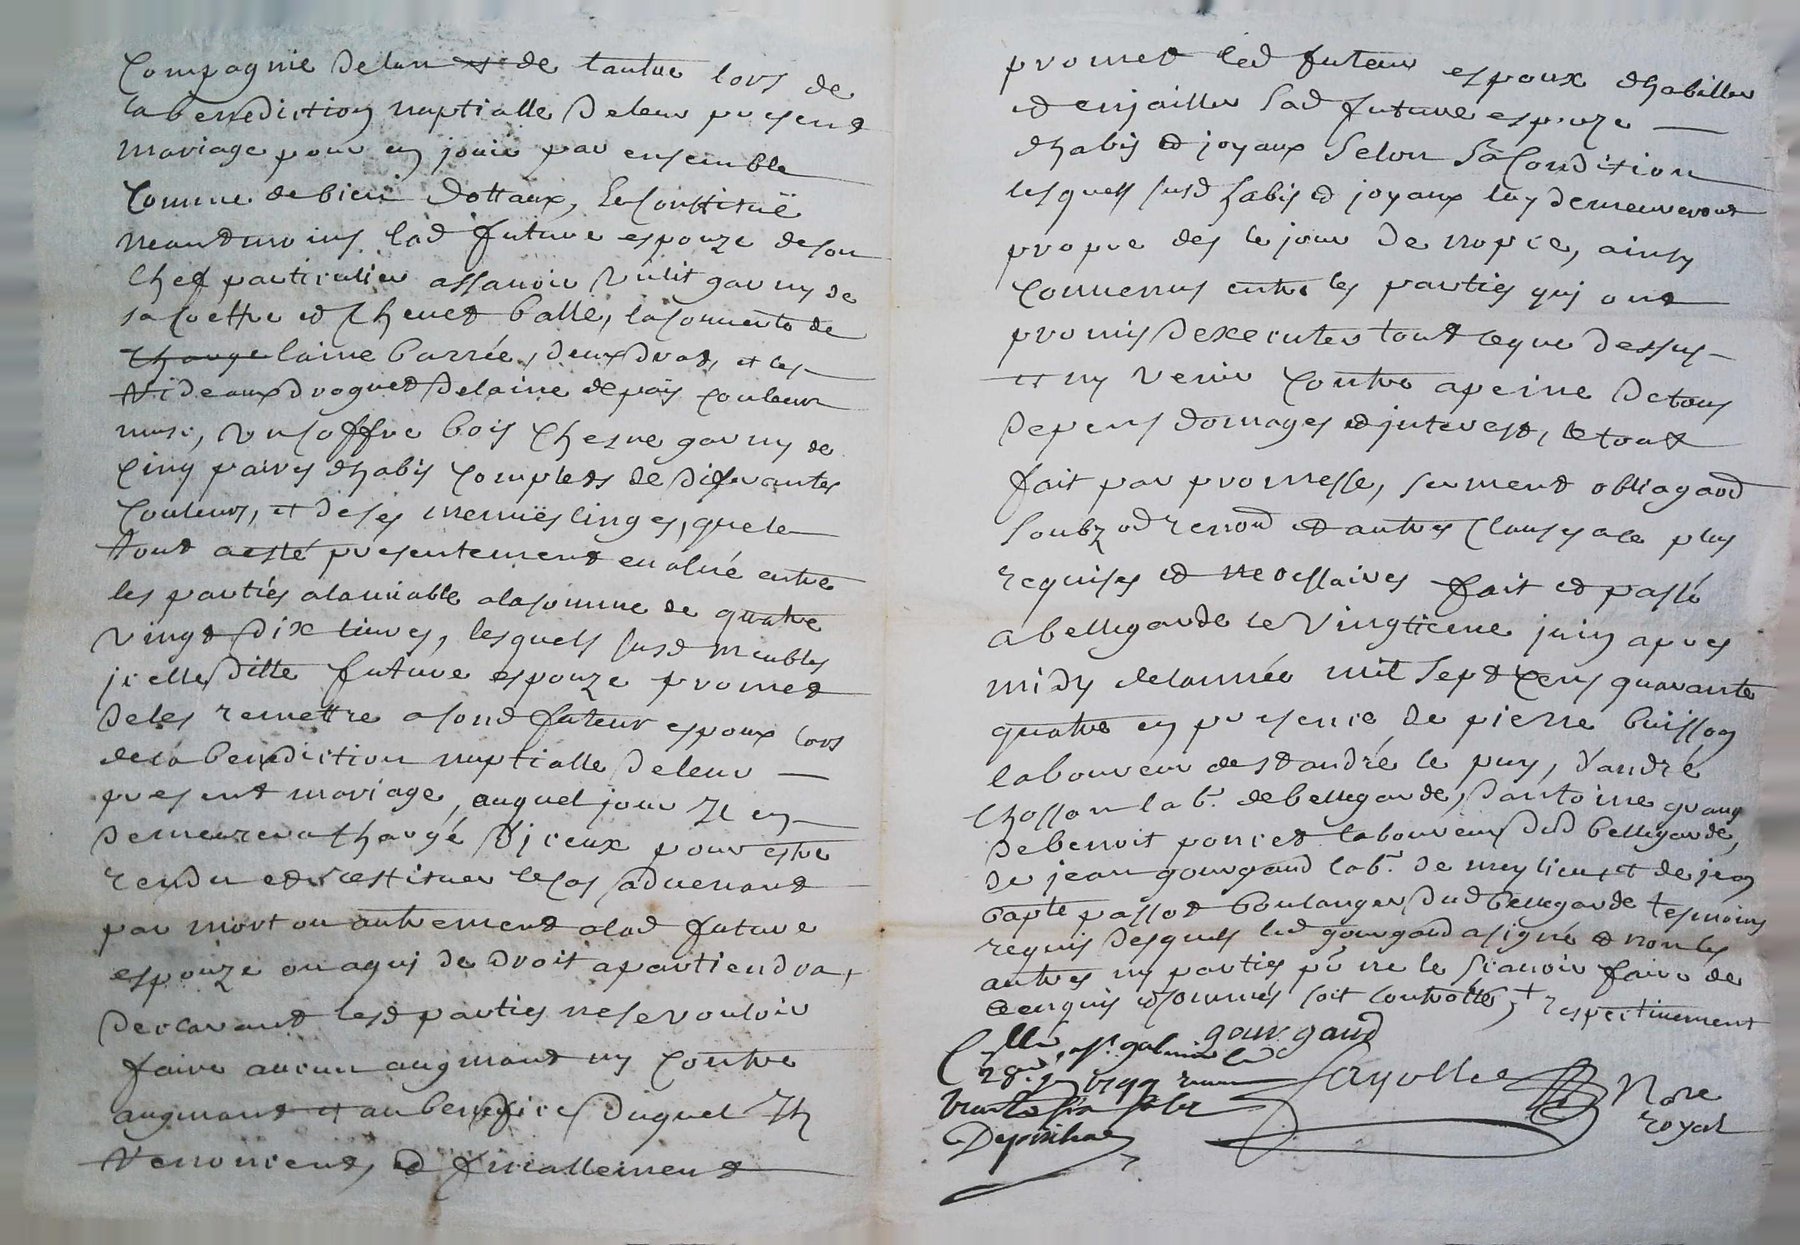 Compagnie de lun et de lautre lors de
la benediction nuptialle de leur present
mariage pour en jouir par ensemble
Comme de bien dottaux, se constituë
neantmoins lad future espouze de son
chef particulier assavoir un lit garny de
sa coettre et chevet balle, la couverte de
laine barrée, deux drat, et les
rideaux droguet de laine de païs couleur
muse, un coffre bois chesne garny de
cinq paires dhabis complets de diferantes
couleurs, et de ses menuës linges, que le
tout a esté presentement evalué entre
les partiés alamiable a la somme de quatre
vingt dix livres, lesquels susd meubles
icelle ditte future espouze promet
de les remettre a sond futeur espoux lors
de la benediction nuptialle de leur
present mariage, auquel jour Il en
demeurera chargé d'iceux pour estre
rendu et restituer le cas advenant
par mort ou autrement a lad future
espouze ou a qui de droit apartiendra,
declarant lesd parties ne se vouloir
faire aucun augmant ny contre
augmant et au benefice duquel Ils
renoncent, et finallement
promet led futeur espoux dhabiller
et enjailler sad future espouze
dhabis et joyaux selon sa condition
lesquels susd habis et joyaux luy demeureront
propre des le jour de nopce, ainsy
convenus entre les parties qui ont
promis dexecuter tout ce que dessus
et ny venir contre a peine de tous
depens domages et interest, le tout
fait par promesse, serment obligaond
soubz od renond et autres clauses a ce plus
requises et necessaires fait et passé
a bellegarde le vingtieme juin apres
midy de lannée mil sept cens quarante
quatre en presence de pierre buisson
laboureur de st andré le puy, d'andré
Chosson lab.r de bellegarde, d'antoine
de benoit poncet laboureur dud bellegarde,
de jean gourgaud lab.r de meylieu et de jean
bapte passot boulanger dud bellegarde tesmoins
requis desquels led gourgaud a signé et non les
autres ny parties pr ne le scavoir faire de
ce enquis et sommés soit controllé + respectivement
gourgaud
Nore
royal